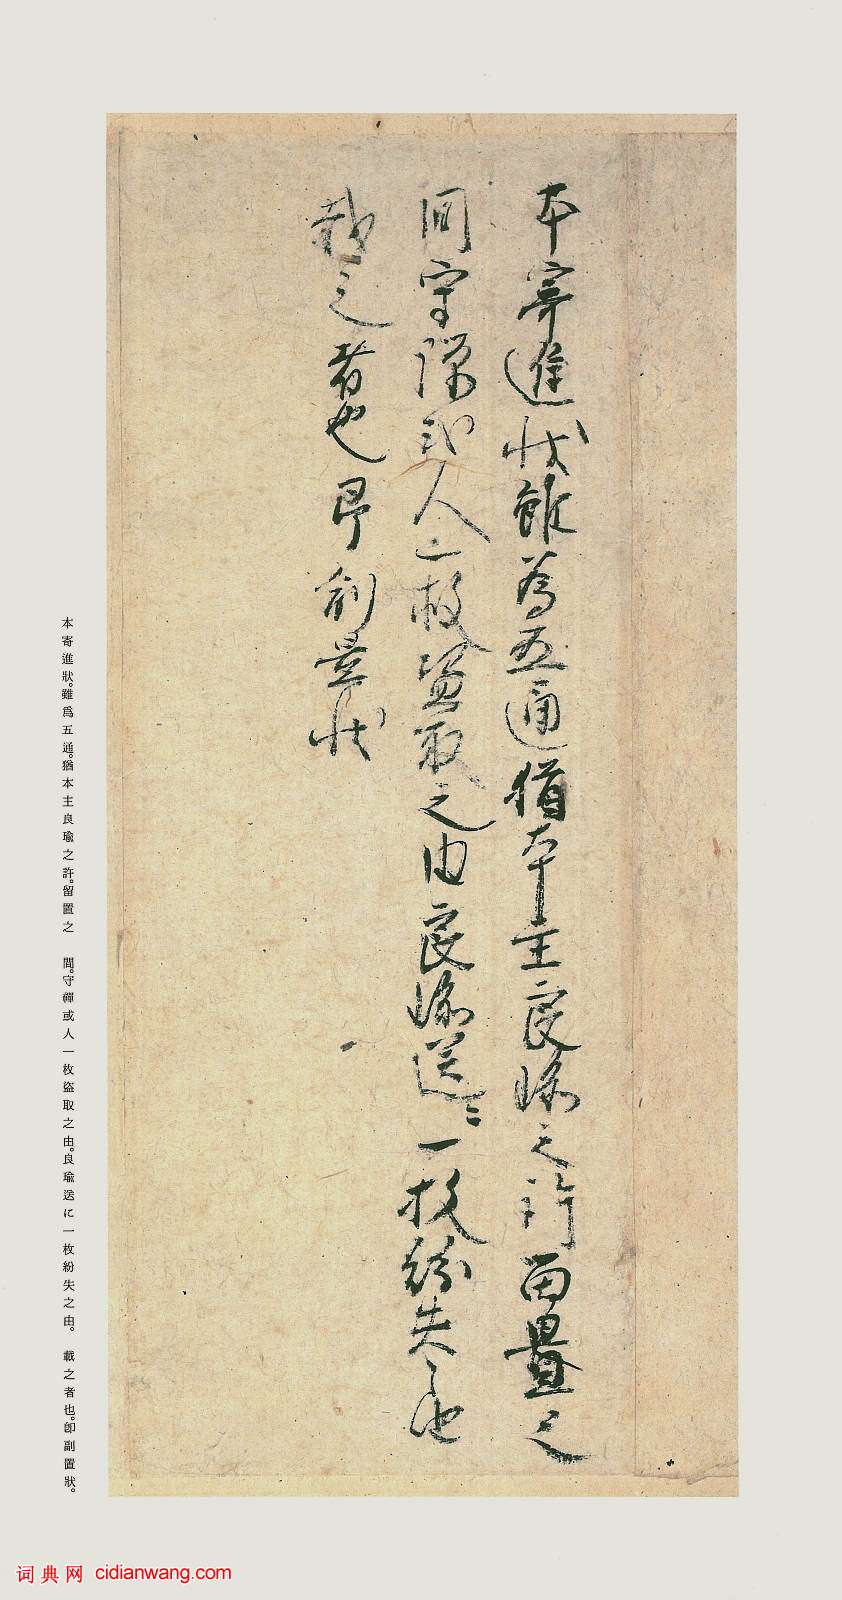 本寄進状雖為五通猶本主良瑜之許留置之
間守禅或人一枚盗取之由良瑜送ニ一枚紛失之由
載之者也即副置状
本寄進狀。雖爲五通。猶本主良瑜之許。留置之　間。守禪或人一枚盜取之由。良瑜送に一枚紛失之由。　載之者也。卽副置狀。
词典网 cidianwang.com